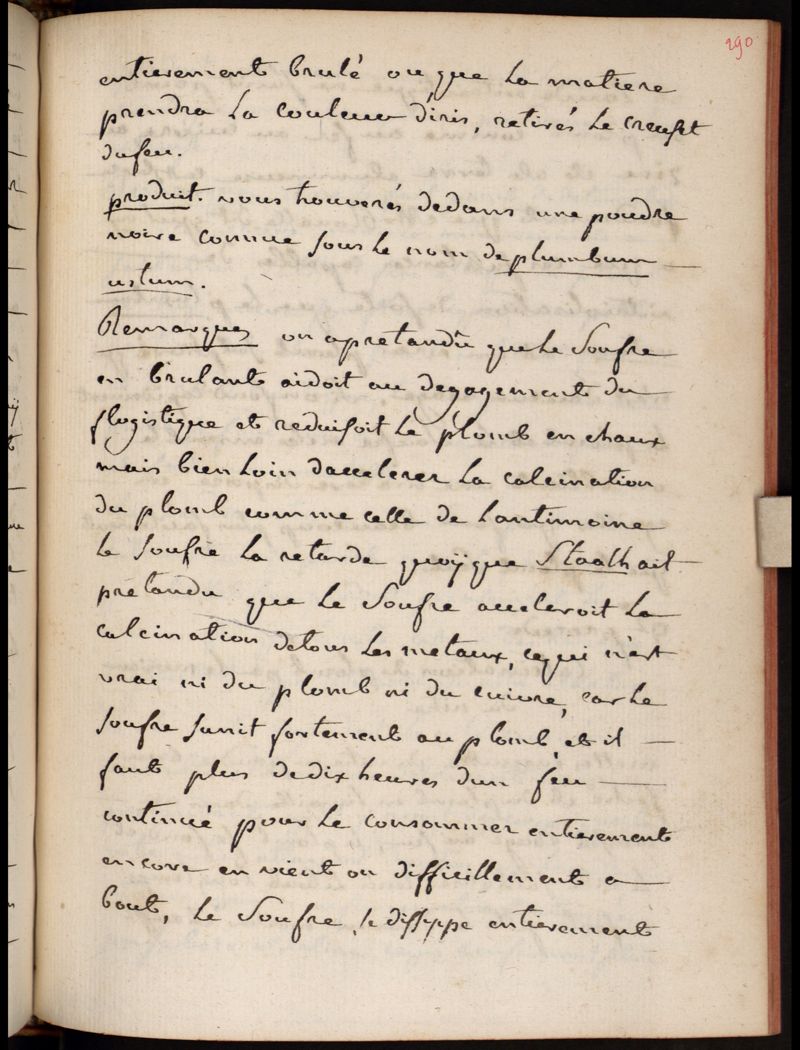 290
entierement brulé ou que la matiere
prendra la couleur diris, retirés le creuset
du feu.
produit. vous trouverés dedans une poudre
noire connue sous le nom de plumbum
ustum.
Remarques on a pretandu que le soufre
en brulant aidoit au degagement du
flogistique et reduisoit le plomb en chaux
mais bien loin daccelerer la calcination
du plomb comme celle de lantimoine
le soufre la retarde quoÿque Staalh ait
pretandu que le soufre acceleroit la
calcination de tous les metaux, ce qui n'est
vrai ni du plomb ni du cuivre, car le
soufre sunit fortement au plomb, et il
faut plus de dix heures dun feu
continué pour le consommer entierement
encore en vient on difficillement a
bout, le soufre se dissippe entierement